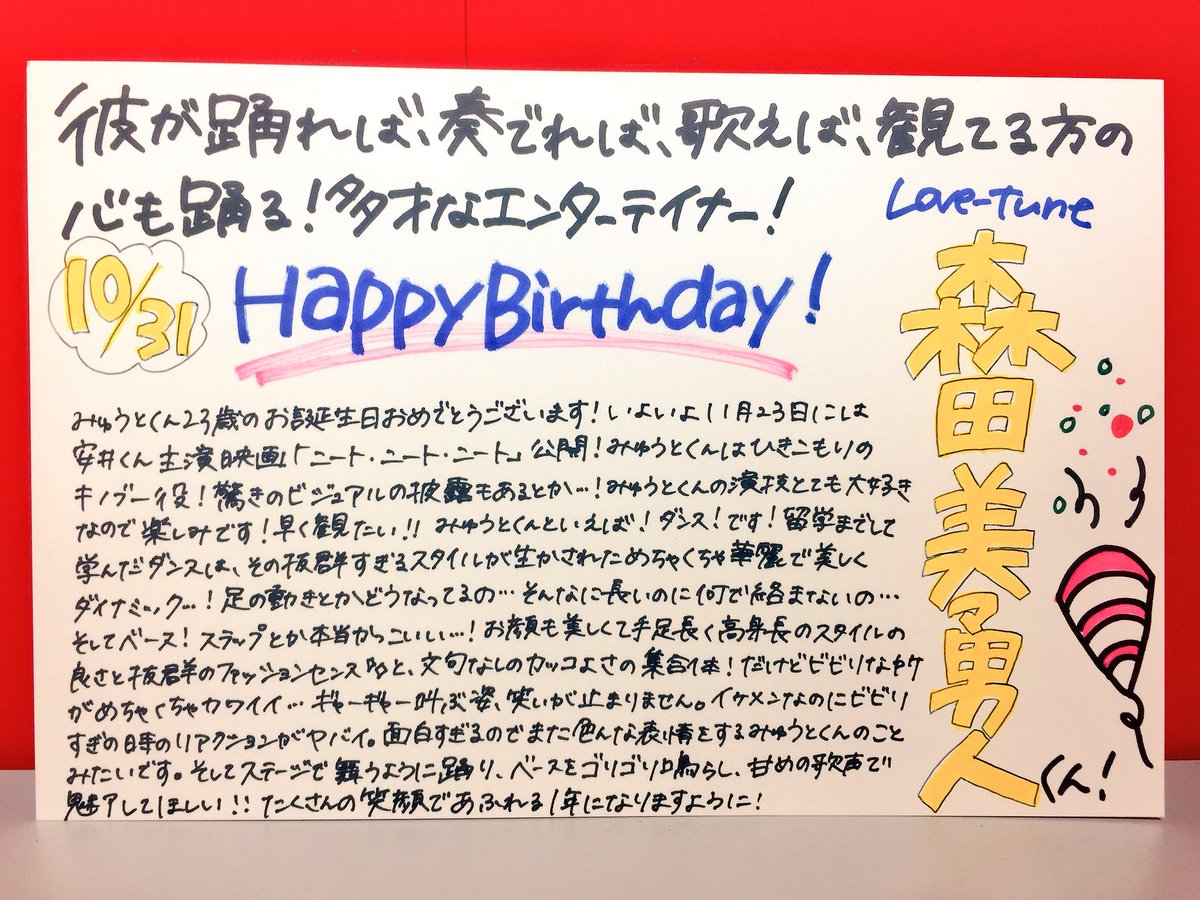 彼が踊れば、奏でれば、歌えば、観てる方の
心も踊る!多才なエンターテイナー!
Love-tune
森田美勇人くん!
10/31
Happy Birthday!
みゅうとくん23歳のお誕生日おめでとうございます!いよいよ11月23日には
安井くん主演映画「ニート・ニート・ニート」公開!みゅうとくんはひきこもりの
キノブー役!驚きのビジュアルの披露もあるとか…!みゅうとくんの演技とても大好き
なので楽しみです!早く観たい!!みゅうとくんといえば!ダンス!です!留学までして
学んだダンスは、その抜群すぎるスタイルが生かされためちゃくちゃ華麗で美しく
ダイナミック…!足の動きとかどうなってるの…そんなに長いのに何で絡まないの…
そしてベース!スラップとか本当かっこいい…!お顔も美しくて手足長く高身長のスタイルの
良さと抜群のファッションセンスなど、文句なしのカッコよさの集合体!だけどビビりなトコ
がめちゃくちゃカワイイ…ギャーギャー叫ぶ姿、笑いが止まりません。イケメンなのにビビリ
すぎの時のリアクションがヤバイ。面白すぎるのでまた色んな表情をするみゅうとくんのこと
みたいです。そしてステージで舞うように踊り、ベースをゴリゴリ鳴らし、甘めの歌声で
魅了してほしい!!たくさんの笑顔であふれる1年になりますように!